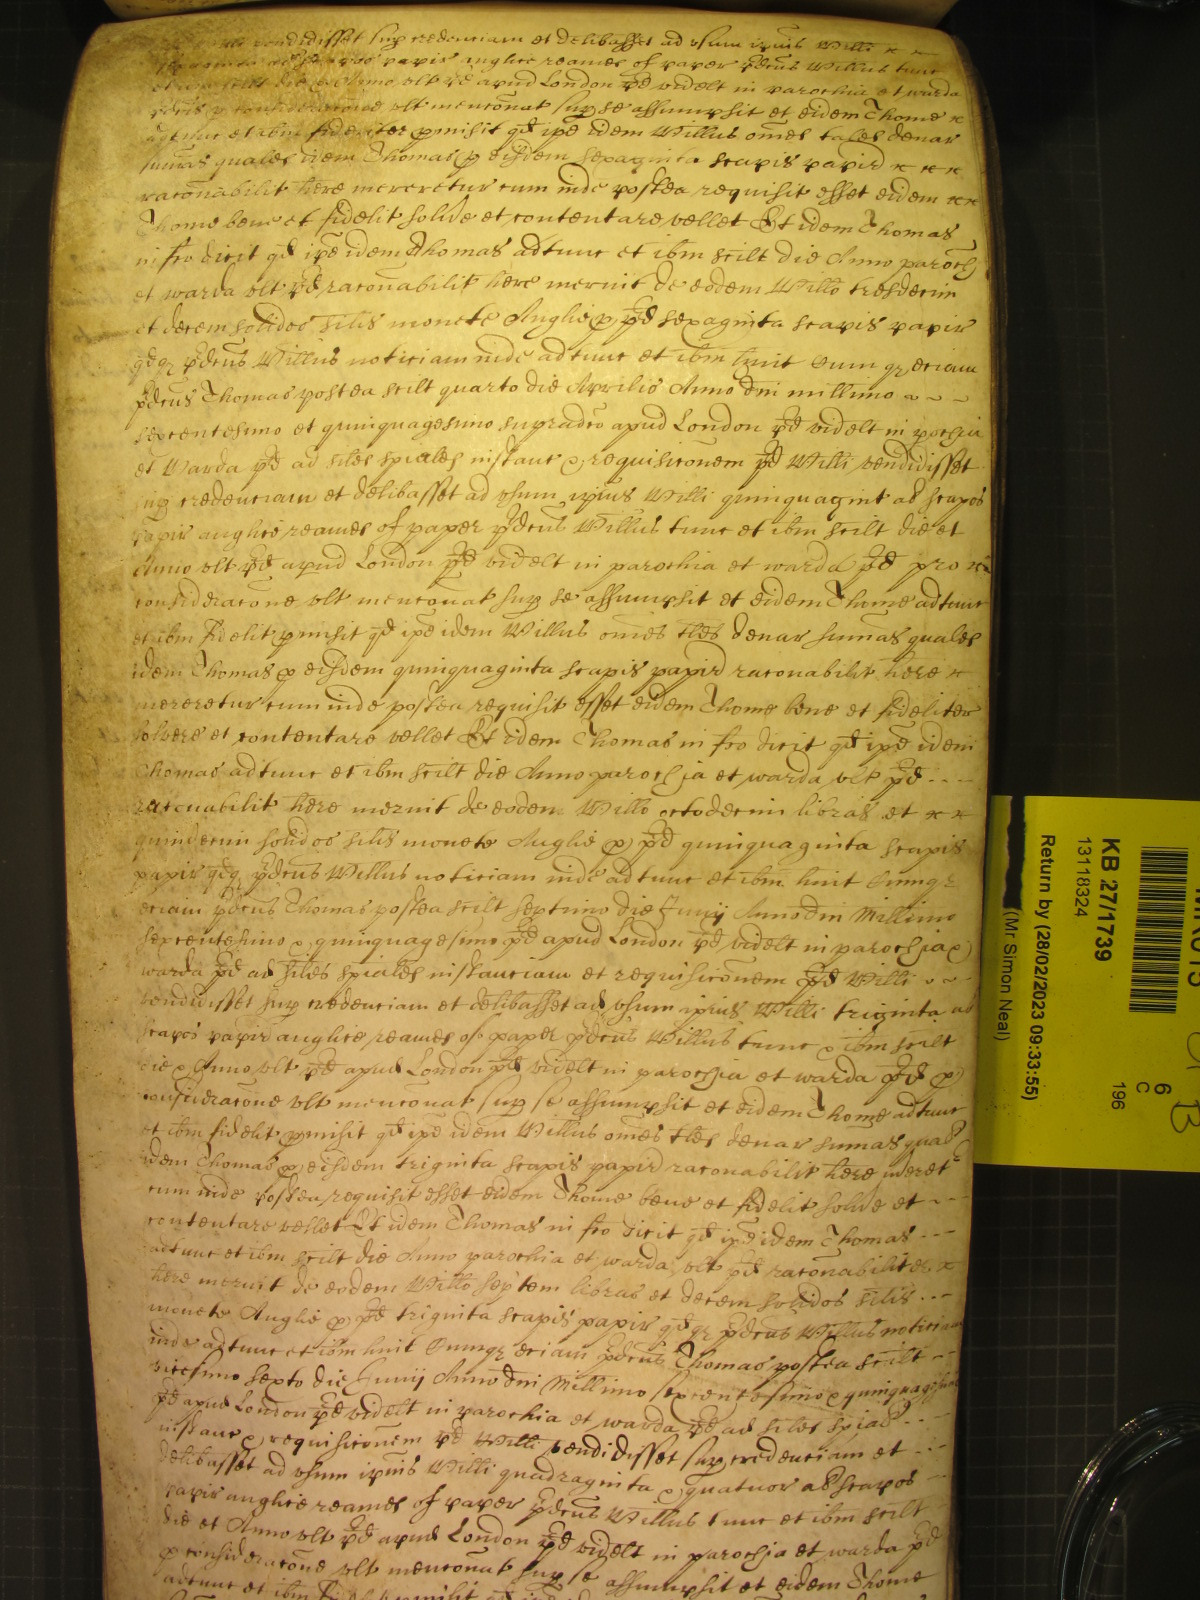 vendidisset sup credenciam et delibasset ad usum ipius Willi
papir anglice reames of paper pdcus Willus tunc
die Anno ult pd apud London pd videlt in parochia et warda
consideracone ult menconat sup se assumpsit et eidem Thome
adtunc et ibm fideliter pmisit qd ipe idem Willus omes tales denar
sumas quales idem Thomas p eisdem sexaginta scapis papir
raconabilit here mereretur cum inde postea requisit esset eidem
Thome bene et fidelit solvere et contentare vellet Et idem Thomas
in fco dicit qd ipe idem Thomas adtunc et ibm scilt die Anno paroch
et warda ult pd raconabilit here meruit de eodem Willo tresdecim
et decem solidos silis monete Anglie p pd sexaginta scapis papir
qdq pdcus Willus noticiam inde adtunc et ibm huit Cumq eciam
pdcus Thomas postea scilt quarto die Aprilis Anno dni millimo
sexcentesimo et quinquagesimo supradco apud London pd videlt in pochia
et Warda pd ad siles spiales instanc & requisiconem pd Willi vendidisset
sup credenciam et delibasset ad usum ipius Willi quinquagint al scapos
papir anglice reames of paper pdcus Willus tunc et ibm scilt die et
Anno ult pd apud London pd videlt in parochia et warda pd pro
consideracone ult menconat sup se assumpsit et eidem Thome adtunc
et ibm fidelit pmisit qd ipe idem Willus omes tles denar sumas quales
idem Thomas p eisdem quinquaginta scapis papir raconabilit here
mereretur cum inde postea requisit esset eidem Thome bene et fideliter
solvere et contentare vellet Et idem Thomas in fco dicit qd ipe idem
Thomas adtunc et ibm scilt die Anno parochia et warda ult pd
raconabilit here meruit de eodem Willo octodecim libras et
quindecim solidos silis monete Anglie p pd quinquaginta scapis
papir qdq pdcus Willus noticiam inde adtunc et ibm huit Cumq
eciam pdcus Thomas postea scilt septimo die Junij Anno dni Millimo
sexcentesimo & quinquagesimo pd apud London pd videlt in parochia &
warda pd ad siles spiales instanciam et requisiconem pd Willi
vendidisset sup credenciam et delibasset ad usum ipius Willi triginta al
scapos papir anglice reames of paper pdcus Willus tunc & ibm scilt
die & Anno ult pd apud London pd videlt in parochia et warda pd p
consideracone ult menconat sup se assumpsit et eidem Thome adtunc
et ibm fidelit pmisit qd ipe idem Willus omes tles denar sumas quales
idem Thomas p eisdem triginta scapis papir raconabilit here meret
cum inde postea requisit esset eidem Thome bene et fidelit solvere et
contentare vellet Et idem Thomas in fco dicit qd ipe idem Thomas
adtunc et ibm scilt die Anno parochia et warda ult pd raconabilites
here meruit de eodem Willo septem libras et decem solidos silis
monete Anglie p pd triginta scapis papir qdq pdcus Willus noticiam
inde adtunc et ibm huit Cumq eciam pdcus Thomas postea scilt
vicesimo sexto die Junij Anno dni Millimo sexcentesimo & quinquagesimo
pd apud London pd videlt in parochia et warda pd ad siles spial
instanc & requisiconem pd Willi vendidisset sup credenciam et
delibasset ad usum ipius Willi quadraginta & quatuor al scapos
papir anglice reames of paper pdcus Willus tunc et ibm scilt
die et Anno ult pd apud London pd videlt in parochia et warda pd
p consideracone ult menconat sup se assumpsit et eidem Thome
adtunc et ibm
KB 27/1739
13118324
Return by (28/02/2023 09:33:55)
(Mr Simon Neal)
6
C
196